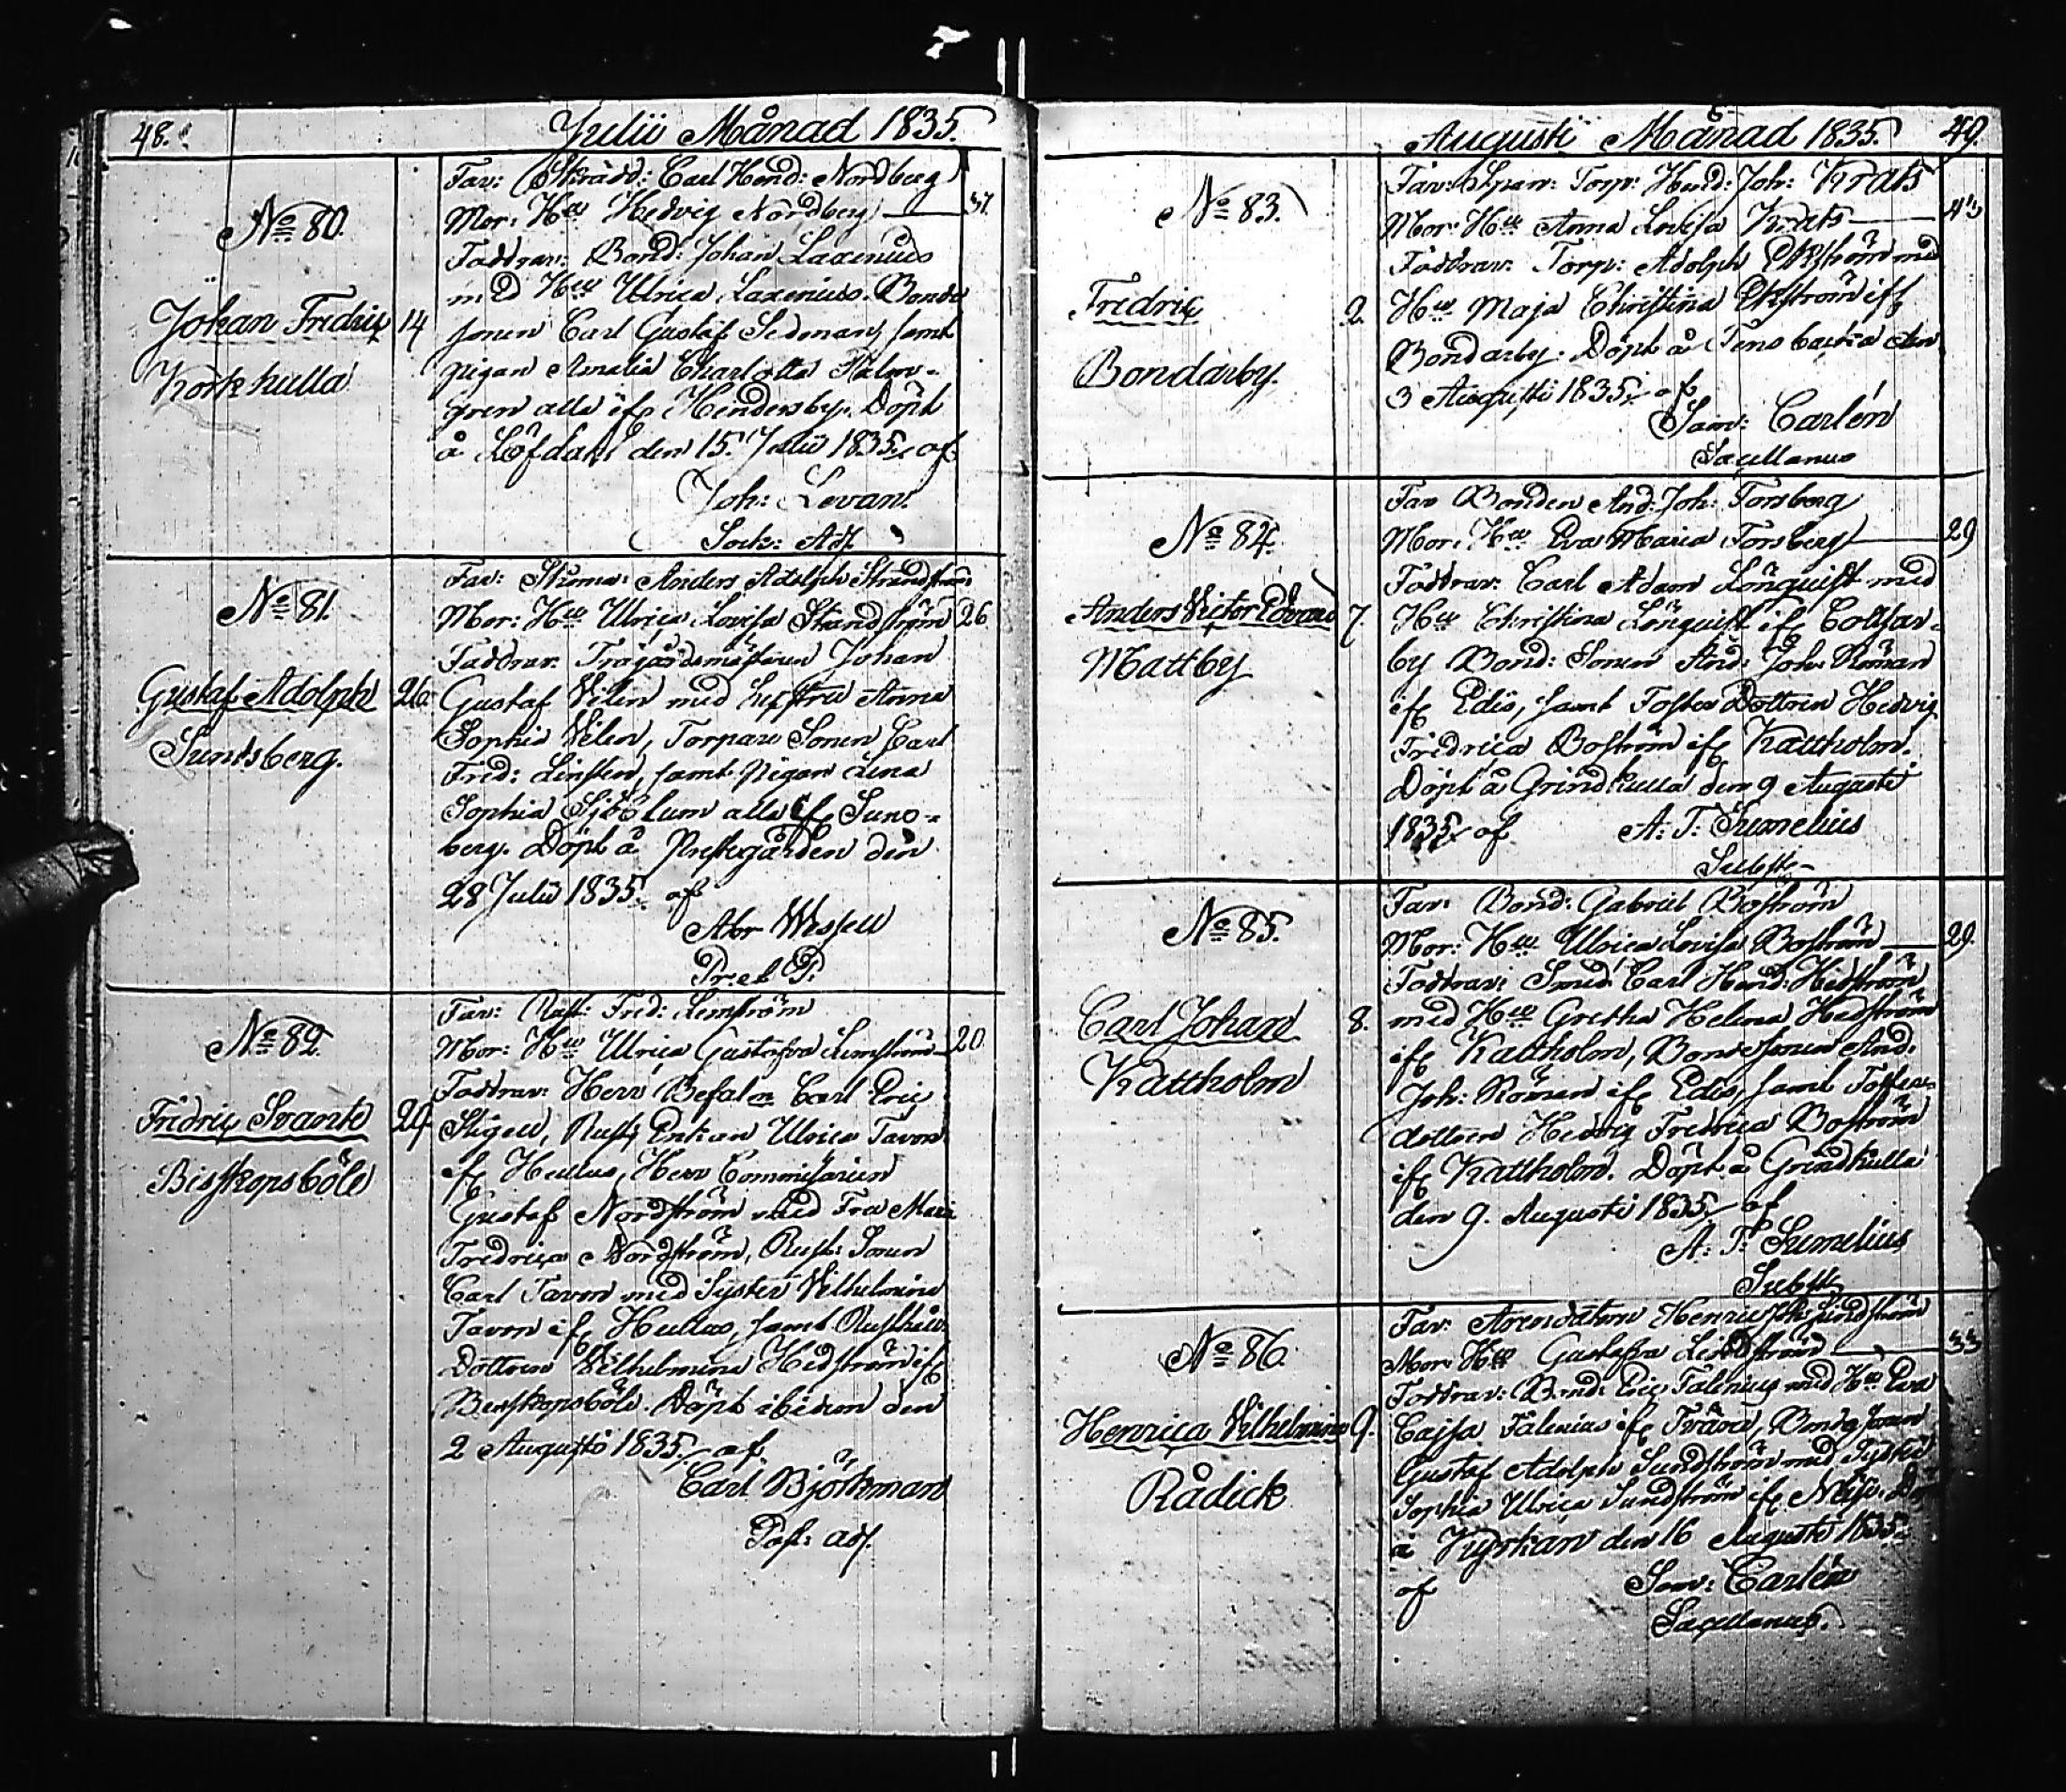 48.
Julii Månad 1835.
No 80.
Johan Fredric
Kårkkulla
14
Far: Skrädd: Carl Hend: Nordberg
Mor: Hu Hedvig Nordberg 37.
Faddrar: Bond: Johan Laxenius
med Hu Ulrica Laxenius. Bonde
sonen Carl Gustaf Sedman, samt
pigan Amalia Charlotta Malm-
gren alla if Hendersby. Döpt
å Löfdahl den 15. Julii 1835 af
Joh: Levan.
Sock: Adj
No 81.
Gustaf Adolph
Sundsberg.
26.
Far: Anders Adolph Strandström
Mor: Hu Ulrica Lovisa Strandström 26
Faddrar: Trägårdsmästaren Johan
Gustaf Velin med hustru Anna
Sophia Velin, Torpare Sonen Carl
Fred: Linsten, samt Pigan Lena
Sophia alla if Suns-
berg. Döpt å Prestgården den
28 Julii 1835. af
Abr Wessell
Pr: et P:
No 82.
Fridric Svante
Biskopsböle
29.
Far: Rust: Fred: Lemström
Mor: Hu Ulrica Gustafva Lemström 20
Faddrar: Herr Befal Carl Eric
Stigell, Rust: Enkan Ulrica Tavon
if Hellus, Herr Commisarien
Gustaf Nordström med Fru Maria
Fredrica Nordström, Rust: Sonen
Carl Tavon med Syster Vilhelmina
Tavon if Hellus, samt Rusthåll:
Dottren Vilhelmina Hedström if
Beiskopsböle. Döpt ibidem den
2 Augusti 1835 af.
Carl Björkman
Past: adj.
Augusti Månad 1835.
49.
No 83.
Fredric
Bondarby.
2.
Far: Torp: Hend: Joh: Krats
Mor: Hu Anna Lovisa Krats
Faddrar: Torp: Adolph Ekström med
Hu Maja Christina Ekström if
Bondarby. Döpt å den
3 Augusti 1835. af
Sam: Carlén
Sacellanus
No 84.
Anders Victor Edvard
Mattby
7.
Far Bonden And: Joh: Forsberg
Mor: Hu Eva Maria Forsberg 29
Faddrar: Carl Adam Lönquist med
Hu Christina Lönquist if
by Bond: Sonen And: Joh: Röman
if Edis, samt Foster Dottren Hedvig
Fredrica Boström if Kattholm.
Döpt å Grindkulla den 9 Augusti
1835 af A: T: Sumelius
Subst:
No 85.
Carl Johan
Kattholm
8.
Far: Bond: Gabriel Boström
Mor: Hu Ulrica Lovisa Boström 29.
Faddrar: Smed: Carl Hend: Hedström
med Hu Gretha Helena Hedström
if Kattholm, Bondesonen And:
Joh: Röman if Edis, samt Foster
dottren Hedvig Fredrica Boström
if Kattholm. Döpt å Grindkulla
den 9. Augusti 1835 af
A: T: Sumelius
Subst:
No 86.
Henrica Vilhelmina
Rådick
9.
Far: Arendatorn Henric Joh: Lindström
Mor: Hu Gustafva Lindström 33
Faddrar: Bond: Eric Falenius med Hu Eva
Cajsa Falenius if Bonde sonen
Gustaf Adolph Sundström med Syster
Sophia Ulrica Sundström if Döpt
å Kyrkan den 16 Augusti 1835.
af Sam: Carlén
Sacellanus.